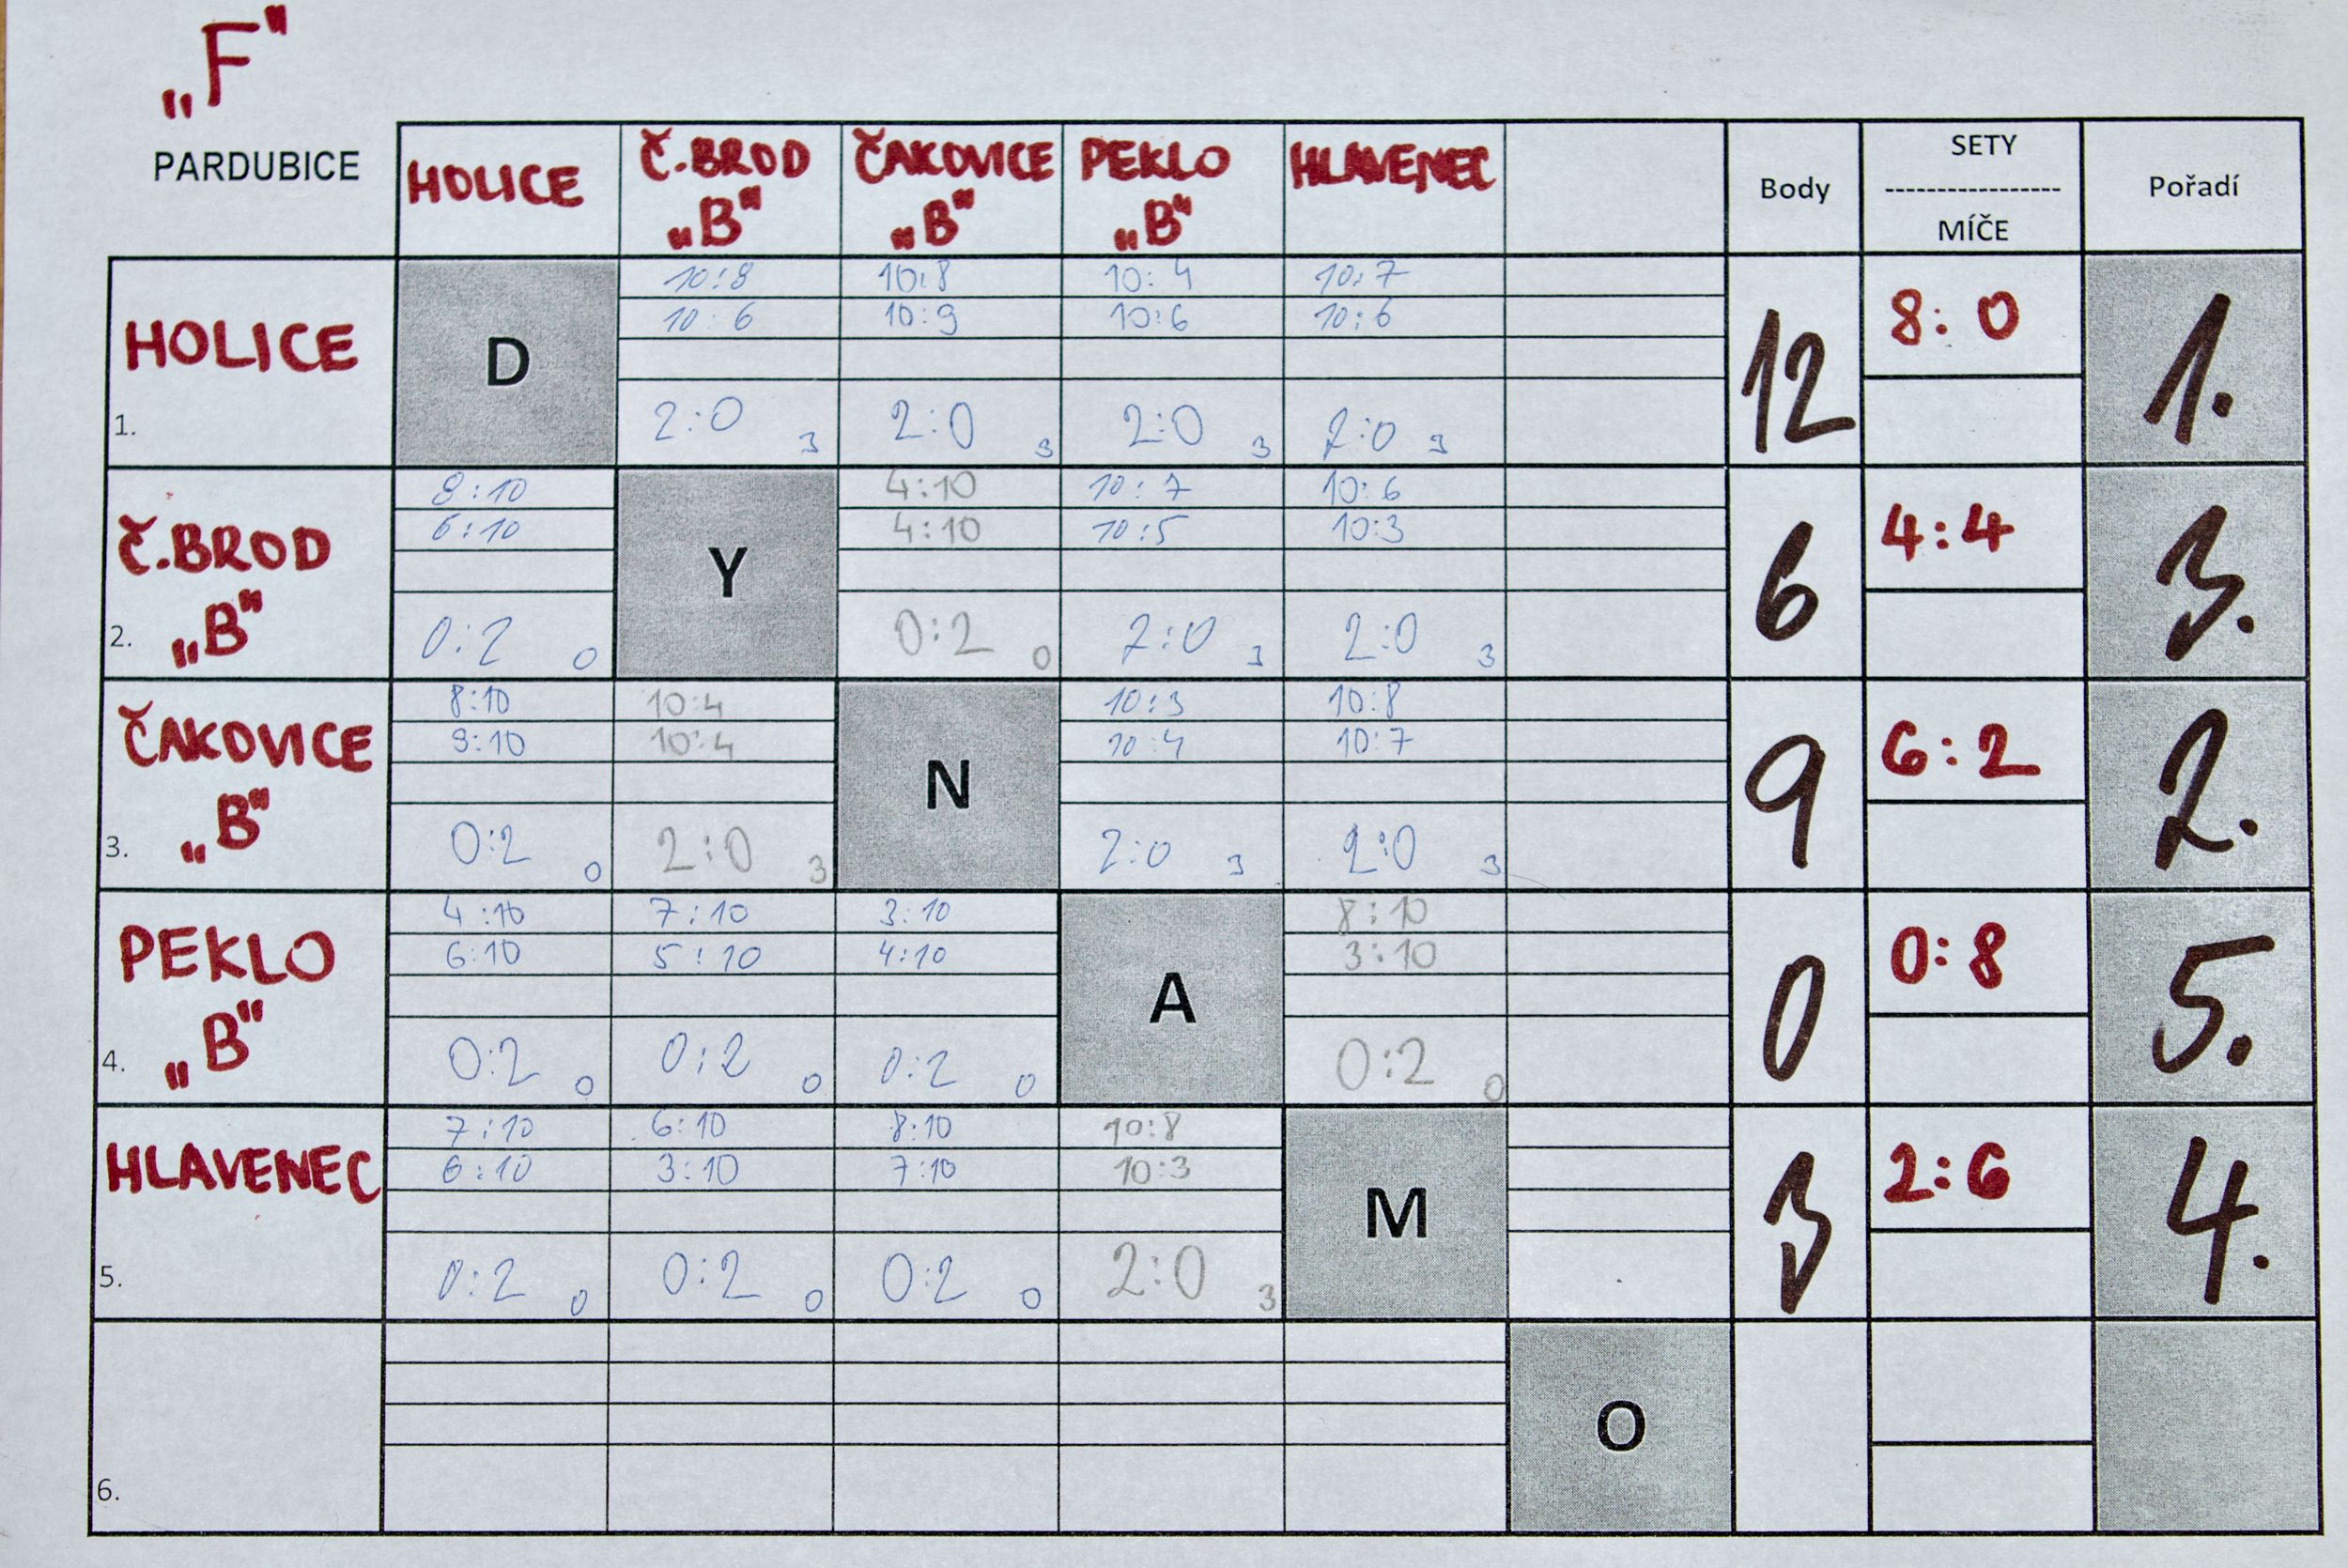 „F"
PARDUBICE
HOLICE
Č.BROD „B"
ČAKOVICE „B"
PEKLO „B"
HLAVENEC
Body
SETY
-----------------
MÍČE
Pořadí
HOLICE
1.
D
10:8 10:8 10:4 10:7
10:6 10:9 10:6 10:6
2:0 3 2:0 3 2:0 3 2:0 3
12
8:0
1.
Č.BROD „B"
2.
8:10 4:10 10:7 10:6
6:10 4:10 10:5 10:3
Y
0:2 0 0:2 0 2:0 3 2:0 3
6
4:4
3.
ČAKOVICE „B"
3.
8:10 10:4 10:3 10:8
9:10 10:4 10:4 10:7
N
0:2 0 2:0 3 2:0 3 2:0 3
9
6:2
2.
PEKLO „B"
4.
4:10 7:10 3:10 8:10
6:10 5:10 4:10 3:10
A
0:2 0 0:2 0 0:2 0 0:2 0
0
0:8
5.
HLAVENEC
5.
7:10 6:10 8:10 10:8
6:10 3:10 7:10 10:3
M
0:2 0 0:2 0 0:2 0 2:0 3
3
2:6
4.
6.
O